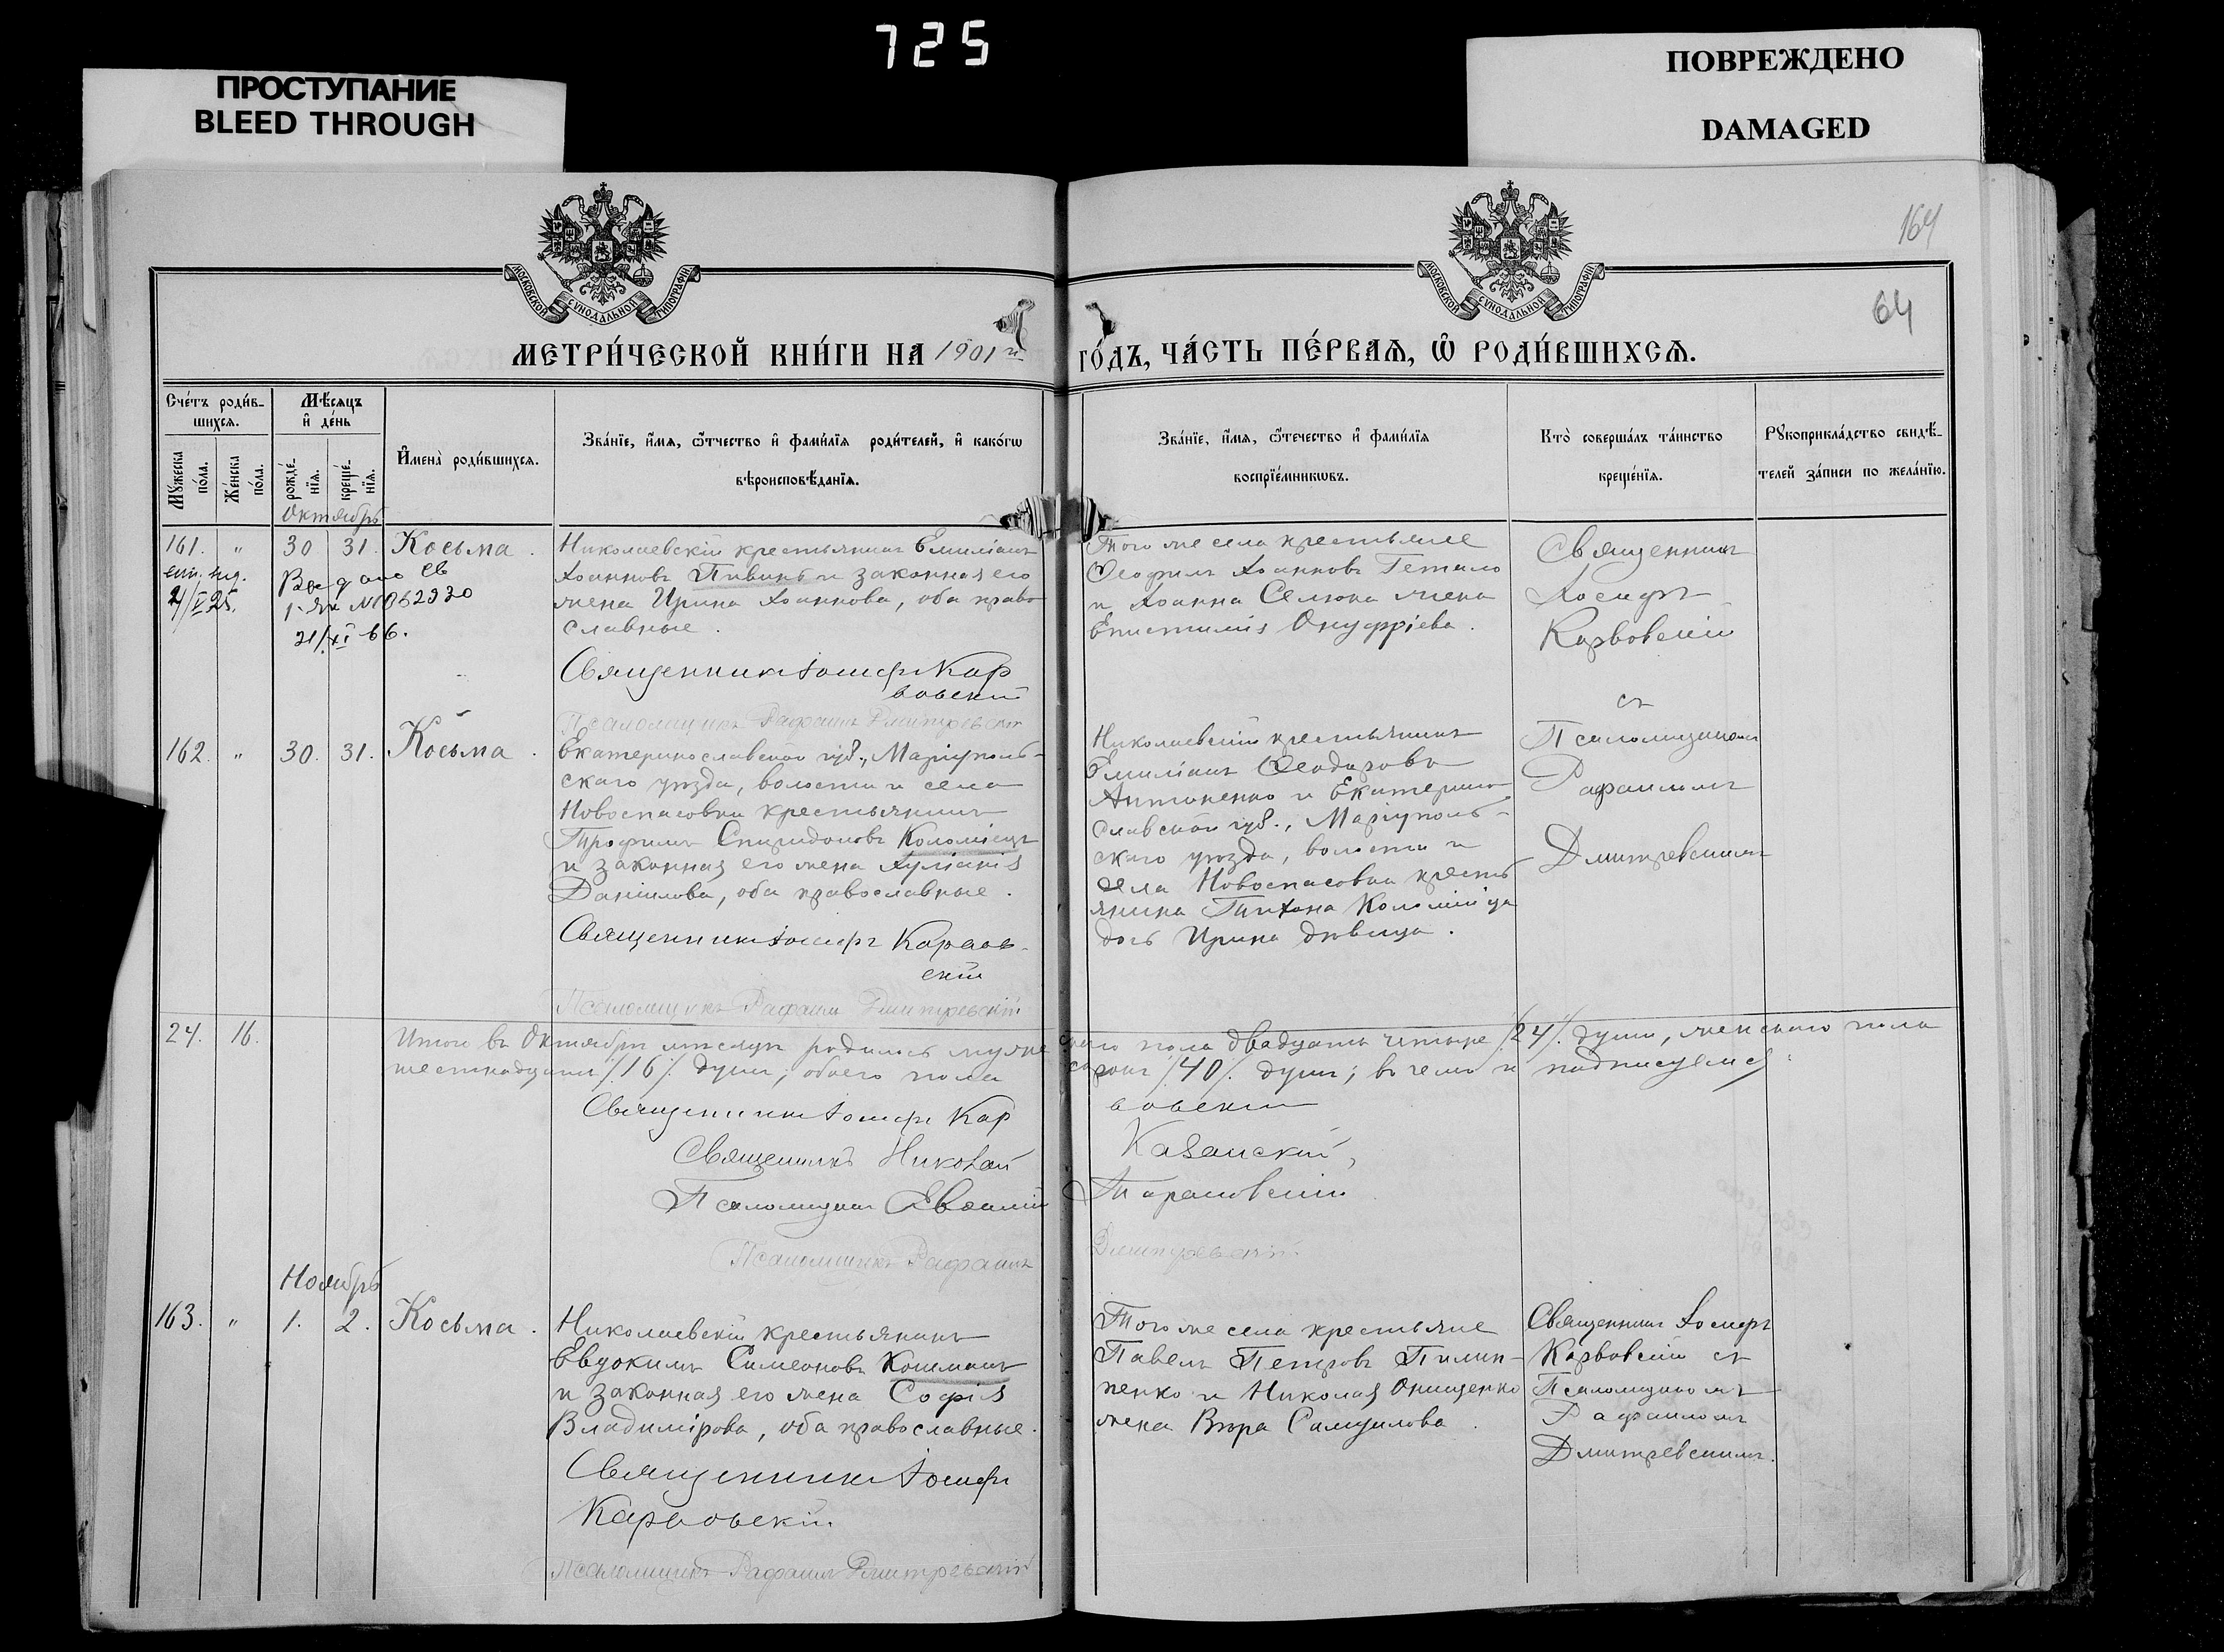 725
ПРОСТУПАНИЕ
BLEED THROUGH
ПОВРЕЖДЕНО
DAMAGED
164
64
МОСКОВСКОЙ СУНОДАЛЬНОЙ ТИПОГРАФІИ
МОСКОВСКОЙ СУНОДАЛЬНОЙ ТИПОГРАФІИ
МЕТРИ́ЧЕСКОЙ КНИ́ГИ НА 1901 й
ГО́ДЪ, ЧА́СТЬ ПЕ́РВАѦ, Ѽ РОДИ́ВШИХСѦ.
Сче́тъ роди́в-
шихсѧ.
Мꙋ́жеска
по́ла.
Же́нска
по́ла.
Мѣ́сѧцъ
и҆ де́нь
рожде́-
нїѧ.
креще́-
нїѧ.
И҆мена̀ роди́вшихсѧ.
Зва́нїе, и҆́мѧ, ѻ҆́тчество и҆ фами́лїѧ роди́телей, и҆ како́гѡ
вѣроисповѣ́данїѧ.
Зва́нїе, и҆́мѧ, ѻ҆́течество и҆ фами́лїѧ
воспрїе́мникѡвъ.
Кто̀ соверша́лъ та́инство
креще́нїѧ.
Рꙋкоприкла́дство свидѣ́-
телей за́писи по жела́нїю.
Октябрь
161. " 30 31. Косьма.
2/I 25.
21/XI 66.
Николаевскій крестьянинъ Емиліанъ
Іоанновъ Пивинъ и законная его
жена Ирина Іоаннова, оба право
славные.
Священникъ Іосифъ Кар
вовскій
Псаломщикъ Рафаилъ Дмитревскій
Того же села крестьяне
Ѳеофилъ Іоанновъ Гетало
и Іоанна Селюка жена
Епистимія Онуфріева.
Священникъ
Іосифъ
Карвовскій
съ
Псаломщикомъ
Рафаиломъ
Дмитревскимъ
162. " 30. 31. Косьма.
Екатеринославской губ., Маріуполь-
скаго уѣзда, волости и села
Новоспасовки крестьянинъ
Трофимъ Спиридоновъ Коломіецъ
и законная его жена Іуліанія
Даніилова, оба православные.
Священникъ Іосифъ Карвов-
скій
Псаломщикъ Рафаилъ Дмитревскій
Николаевскій крестьянинъ
Емиліанъ Ѳеодоровъ
Антоненко и Екатерино
славской губ., Маріуполь-
скаго уѣзда, волости и
села Новоспасовки кресть
янина Тихона Коломійца
дочь Ирина дѣвица.
24. 16.
Итого въ Октябрѣ мѣсяцѣ родилось мужескаго пола двадцать четыре /24/. душъ, женскаго пола
шестнадцать /16/. душъ; обоего пола сорокъ /40/. душъ; въ чемъ и подписуемся:
Священникъ Іосифъ Карвовскій
Священникъ Николай Казанскій,
Псаломщикъ Евѳимій Тарановскій
Псаломщикъ Рафаилъ Дмитревскій
Ноябрь
163. " 1. 2. Косьма.
Николаевскій крестьянинъ
Евдокимъ Симеоновъ Кошманъ
и законная его жена Софія
Владимірова, оба православные.
Священникъ Іосифъ
Карвовскій.
Псаломщикъ Рафаилъ Дмитревскій
Того же села крестьяне
Павелъ Петровъ Пилип-
пенко и Николая Онищенко
жена Вѣра Самуилова.
Священникъ Іосифъ
Карвовскій съ
Псаломщикомъ
Рафаиломъ
Дмитревскимъ.